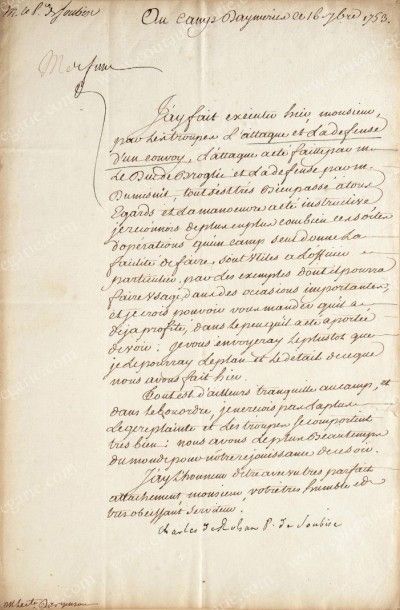 M. le P. de Soubise
Au camp Daymeries ce 16 7bre 1753.
Monsieur
J'ay fait executer hier monsieur,
par les troupes l'attaque et la defense
d'un convoy, l'attaque a eté faitte par m
Le Duc de Broglie et la defense par m.
Dumesnil, tout s'est tres bien passe a tous
Egards et la manoeuvre a eté instructive
je reconnois de plus en plus combien ces sortes
d'operations qu'un camp seul donne la
facilité de faire, sont utiles a l'officier
particulier, par les exemples dont il pourra
faire usage dans des occasions importantes,
et je crois pouvoir vous mander qu'il a
deja profité, dans le peu qu'il a eté a portée
de voir. je vous envoyeray le plustot que
je le pourray le plan et le detail de ce que
nous avons fait hier.
Tout est d'ailleurs tranquille au camp, et
dans le bon ordre, je ne reçois pas la plus
Legere plainte et les troupes se comportent
tres bien; nous avons le plus beau temps
du monde pour notre rejouissance de ce soir.
J'ay L'honneur d'etre avec un tres parfait
attachement, monsieur, votre tres humble et
tres obeissant serviteur.
Charles de Rohan P. de Soubise
M. le Cte Dargenson